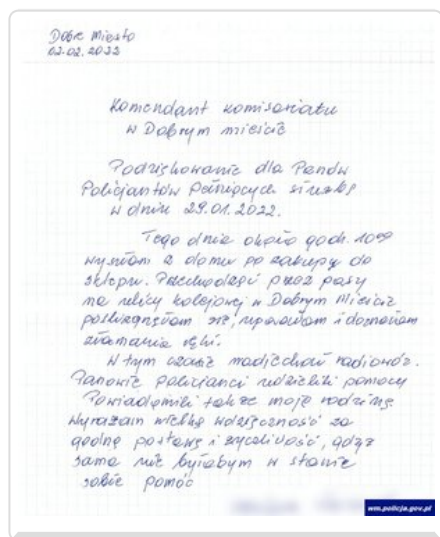 Dobre Miasto
02.02.2022
Komendant komisariatu
w Dobrym mieście
Podziękowanie dla Panów
Policjantów Pełniących służbę
w dniu 29.01.2022.
Tego dnia około godz. 10⁰⁰
wyszłam z domu po zakupy do
sklepu. Przechodząc przez pasy
na ulicy kolejowej w Dobrym Mieście
poślizgnęłam się, upadłam i doznałam
złamania ręki.
W tym czasie nadjechał radiowóz.
Panowie policjanci udzielili pomocy
Powiadomili także moją rodzinę
wyrażam wielką wdzięczność za
godną postawę i życzliwość, gdyż
sama nie byłabym w stanie
sobie pomóc
wm.policja.gov.pl